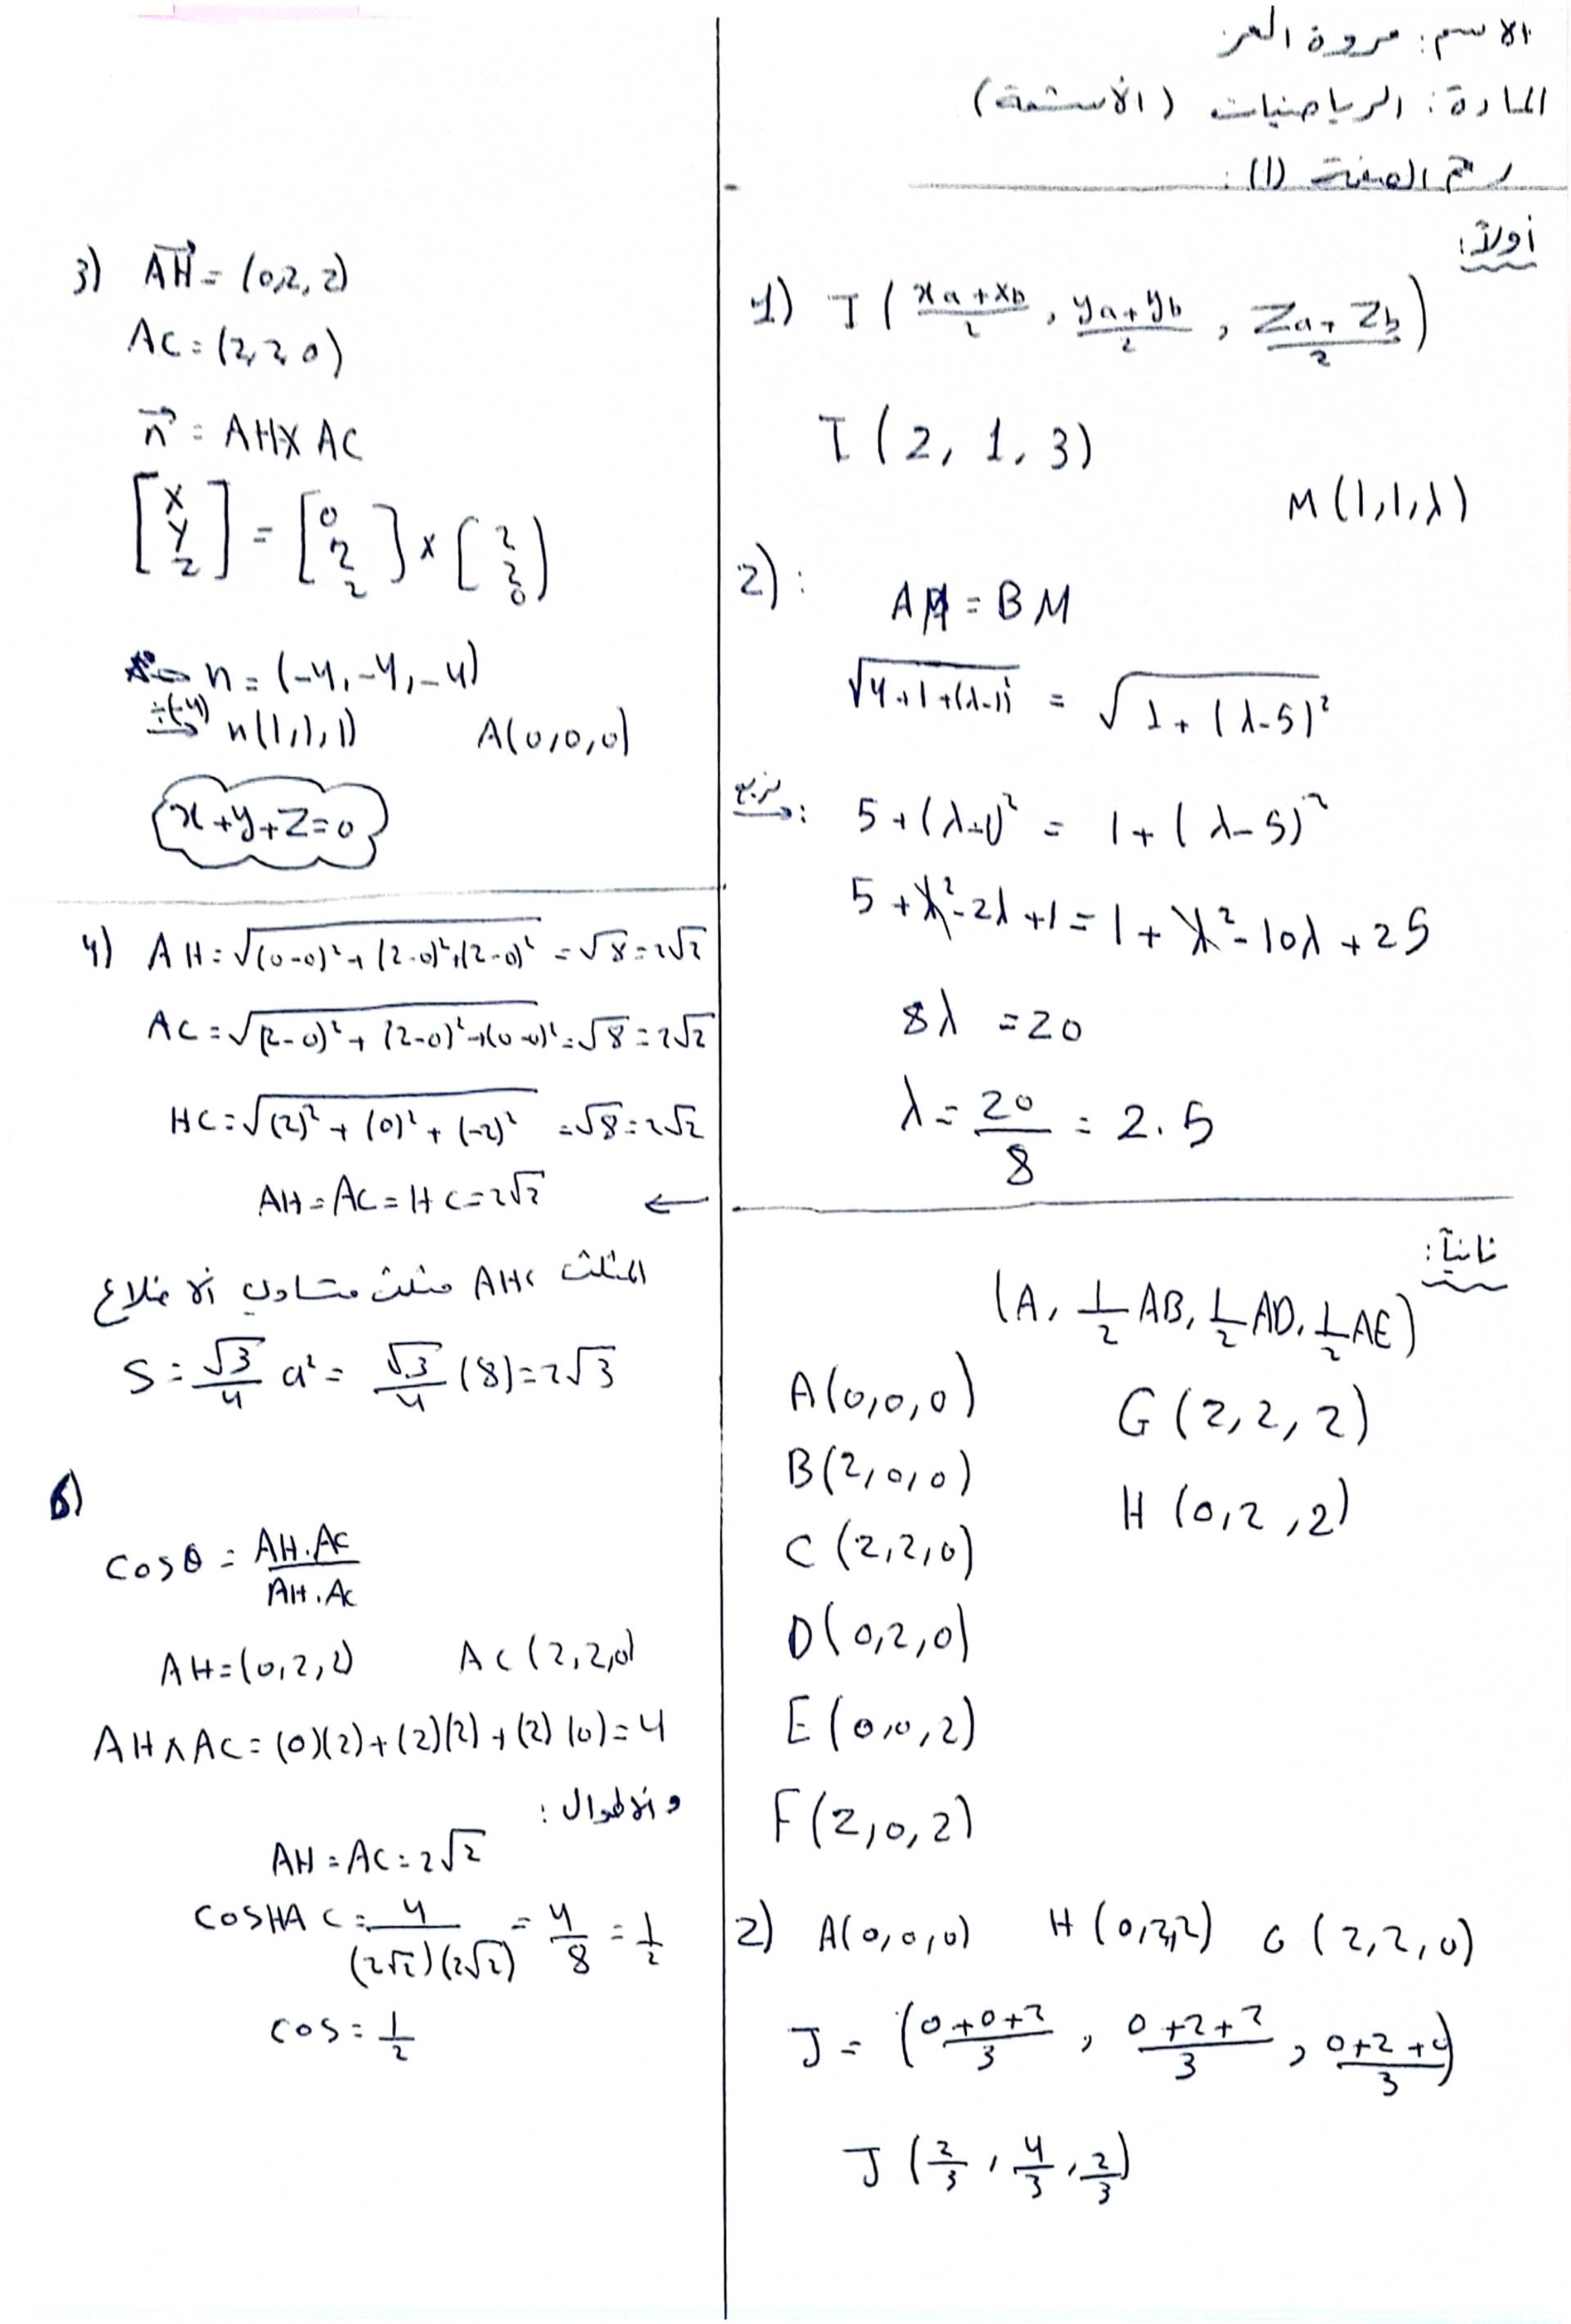 الاسم: مروة العز
المادة: الرياضيات (الأشعة)
رقم الصفحة (1):
أولاً:
1) I ( xa+xb/2 , ya+yb/2 , Za+Zb/2 )
I (2, 1, 3)
M (1,1,λ)
2):
AM = BM
√4+1+(λ-1)² = √1+(λ-5)²
نربع: 5+(λ-1)² = 1+(λ-5)²
5+λ²-2λ+1 = 1+λ²-10λ+25
8λ = 20
λ = 20/8 = 2.5
ثانياً:
(A, 1/2 AB, 1/2 AD, 1/2 AE)
A(0,0,0) G(2,2,2)
B(2,0,0) H(0,2,2)
C(2,2,0)
D(0,2,0)
E(0,0,2)
F(2,0,2)
2) A(0,0,0) H(0,2,2) G(2,2,0)
J = ( 0+0+2/3 , 0+2+2/3 , 0+2+0/3 )
J ( 2/3 , 4/3 , 2/3 )
3) AH = (0,2,2)
AC = (2,2,0)
n = AH X AC
[x y z] = [0 2 2] x [2 2 0]
n = (-4,-4,-4)
÷(-4) n(1,1,1) A(0,0,0)
x+y+z=0
4) AH = √(0-0)²+(2-0)²+(2-0)² = √8 = 2√2
AC = √(2-0)²+(2-0)²+(0-0)² = √8 = 2√2
HC = √(2)²+(0)²+(-2)² = √8 = 2√2
AH = AC = HC = 2√2 ←
المثلث AHC مثلث متساوي الأضلاع
S = √3/4 a² = √3/4 (8) = 2√3
5)
Cosθ = AH.AC/AH.AC
AH = (0,2,2) AC (2,2,0)
AH x AC = (0)(2)+(2)(2)+(2)(0) = 4
والأطوال:
AH = AC = 2√2
COSHAC = 4/(2√2)(2√2) = 4/8 = 1/2
cos = 1/2